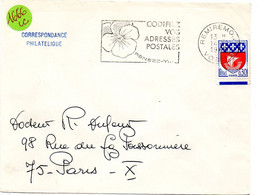 1666
CORRESPONDANCE
PHILATELIQUE
CODIFIEZ
VOS
ADRESSES
POSTALES
REMIREMONT
13 H
Docteur R. Dufour
98 Rue du Fg Poissonnière
75 - Paris - X